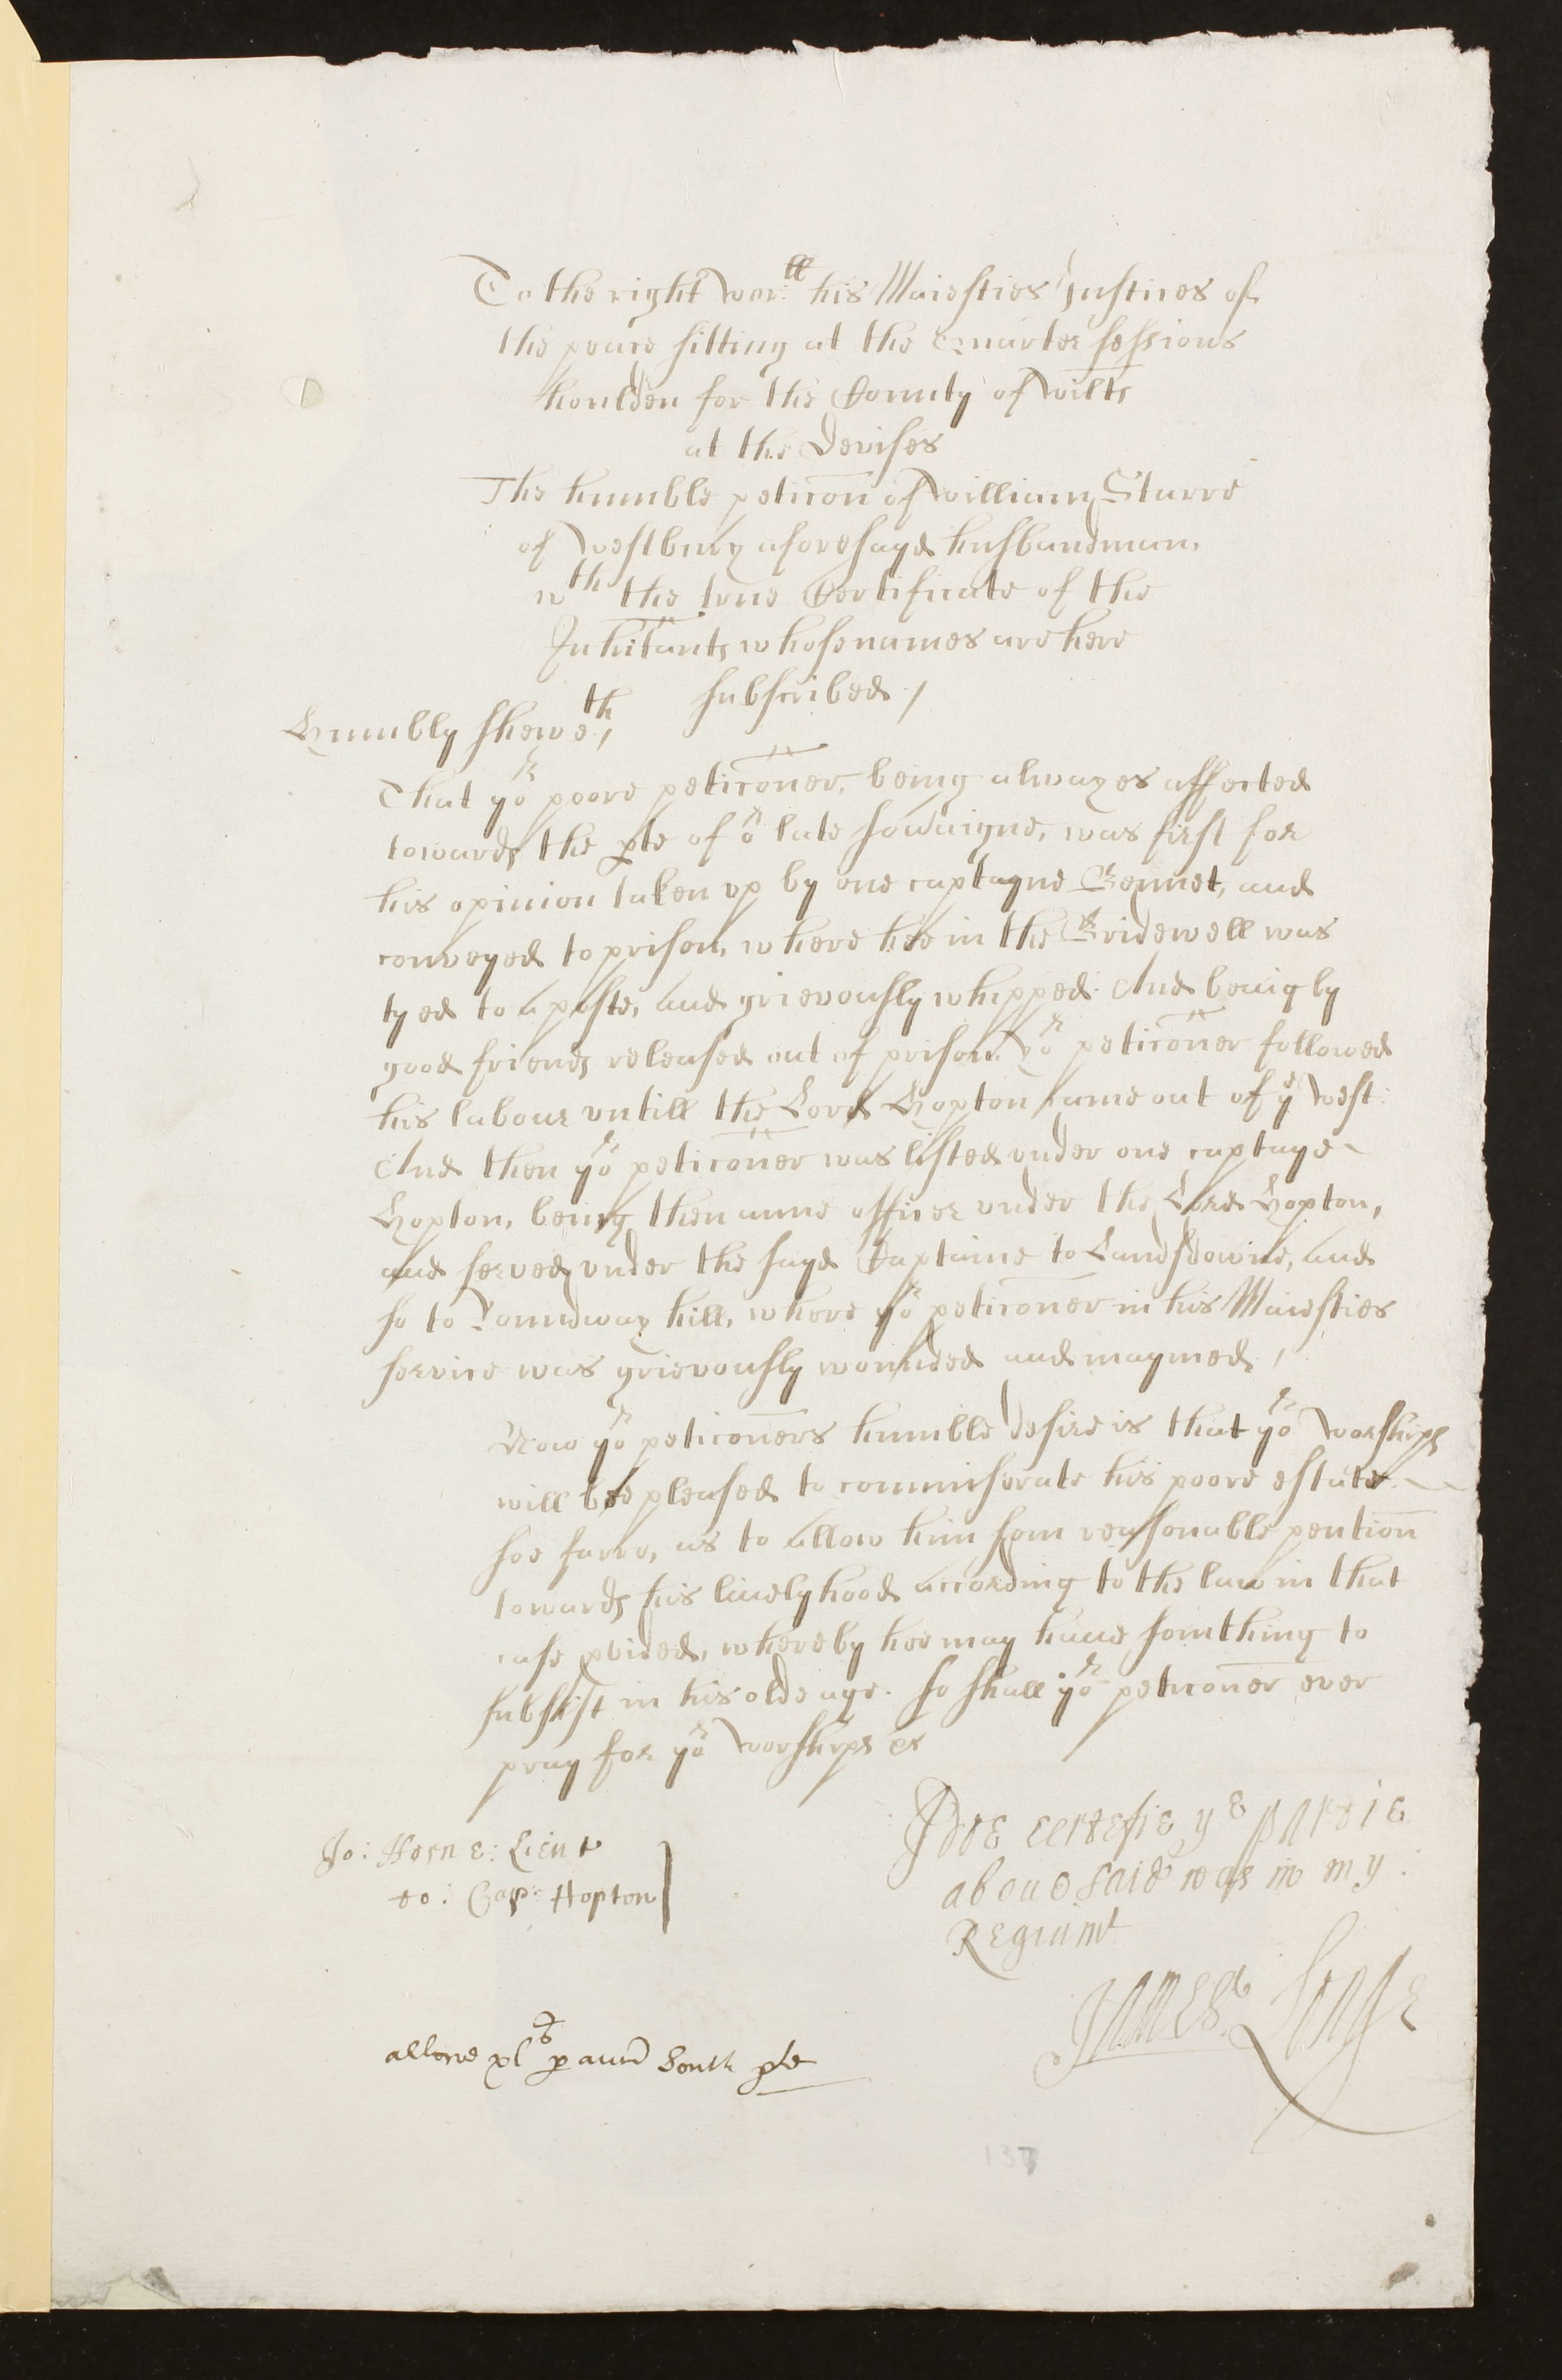 To the right Wor:ll his Maiesties Justices of
the peace sitting at the Quarter sessions
houlden for the County of Wilts
at the Devises
The humble peticon of William Starre
of Westbury aforesayd husbandman,
wth the true Certificate of the
Inhitants whose names are here
subscribed /
Humbly sheweth,
That yor poore peticoner, being alwayes affected
towards the pte of or late sovaigne, was first for
his opinion taken vp by one captayne Bennet, and
conveyed to prison, where hee in the Bridewell was
tyed to a poste, and grievously whipped. And being by
good friends released out of prison. Yor peticoner followed
his labour vntill the Lord Hopton came out of ye West:
And then yor peticoner was listed vnder one captaye
Hopton, being then anne officer vnder the Lord Hopton,
and served vnder the sayd Captaine to Landsdowne, and
so to Roundway hill, where yor peticoner in his Maiesties
service was grievously wounded and maymed,
Now yor peticoners humble desire is that yor Worships
will bee pleased to commiserate his poore estate
soe farre, as to allow him som reasonable pention
towards his livelyhood according to the law in that
case pvided, whereby hee may haue somthing to
subsist in his olde age. So shall yor peticoner ever
pray for yor Worships &c
Jo: Horne: Lieut
to: Cap: Hopton
I doe certefie ye partie
aboue said was in my
Regimt
James Long
allowe xls p annu South pte
137